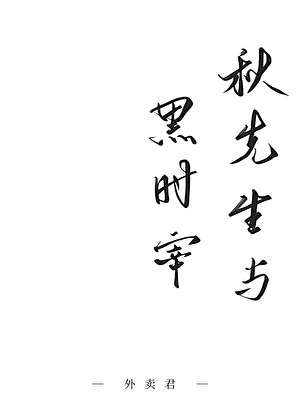 秋先生与
黑时宰
— 外卖君 —